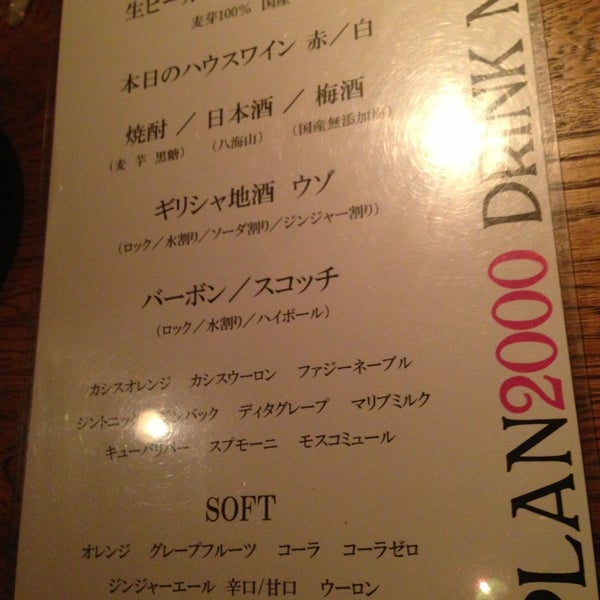 生ビール
麦芽100% 国産
本日のハウスワイン 赤／白
焼酎 ／ 日本酒 ／ 梅酒
（麦 芋 黒糖） （八海山） （国産無添加梅）
ギリシャ地酒 ウゾ
（ロック／水割り／ソーダ割り／ジンジャー割り）
バーボン／スコッチ
（ロック／水割り／ハイボール）
カシスオレンジ カシスウーロン ファジーネーブル
ジントニック ジンバック ディタグレープ マリブミルク
キューバリバー スプモーニ モスコミュール
SOFT
オレンジ グレープフルーツ コーラ コーラゼロ
ジンジャーエール 辛口/甘口 ウーロン
PLAN2000 DRINK